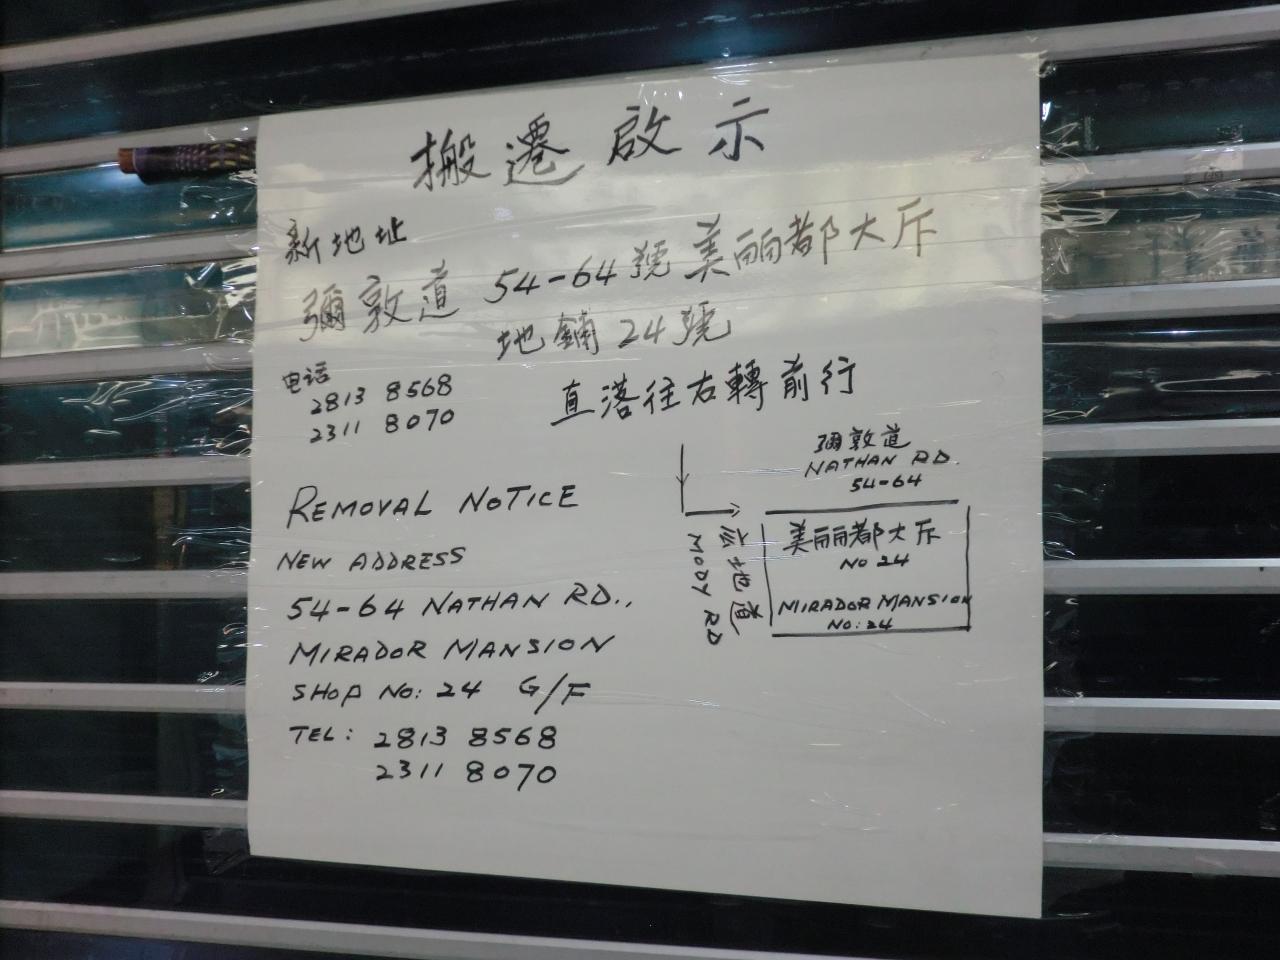 搬遷啟示
新地址
彌敦道 54-64號美丽都大斥
地鋪24號
电话
2813 8568
2311 8070
直落往右轉前行
彌敦道
NATHAN RD.
54-64
美丽都大斥
NO 24
MIRADOR MANSION
NO: 24
MODY RD
REMOVAL NOTICE
NEW ADDRESS
54-64 NATHAN RD.,
MIRADOR MANSION
SHOP NO: 24 G/F
TEL: 2813 8568
2311 8070